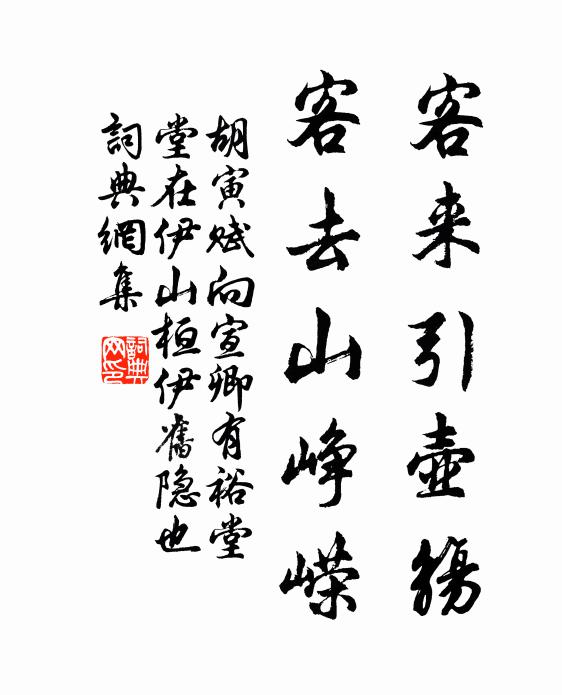 客来引壺觴
客去山峥嵘
胡寅赋向宣卿有裕堂
堂在伊山桓伊舊隐也
詞典網集
詞典網印